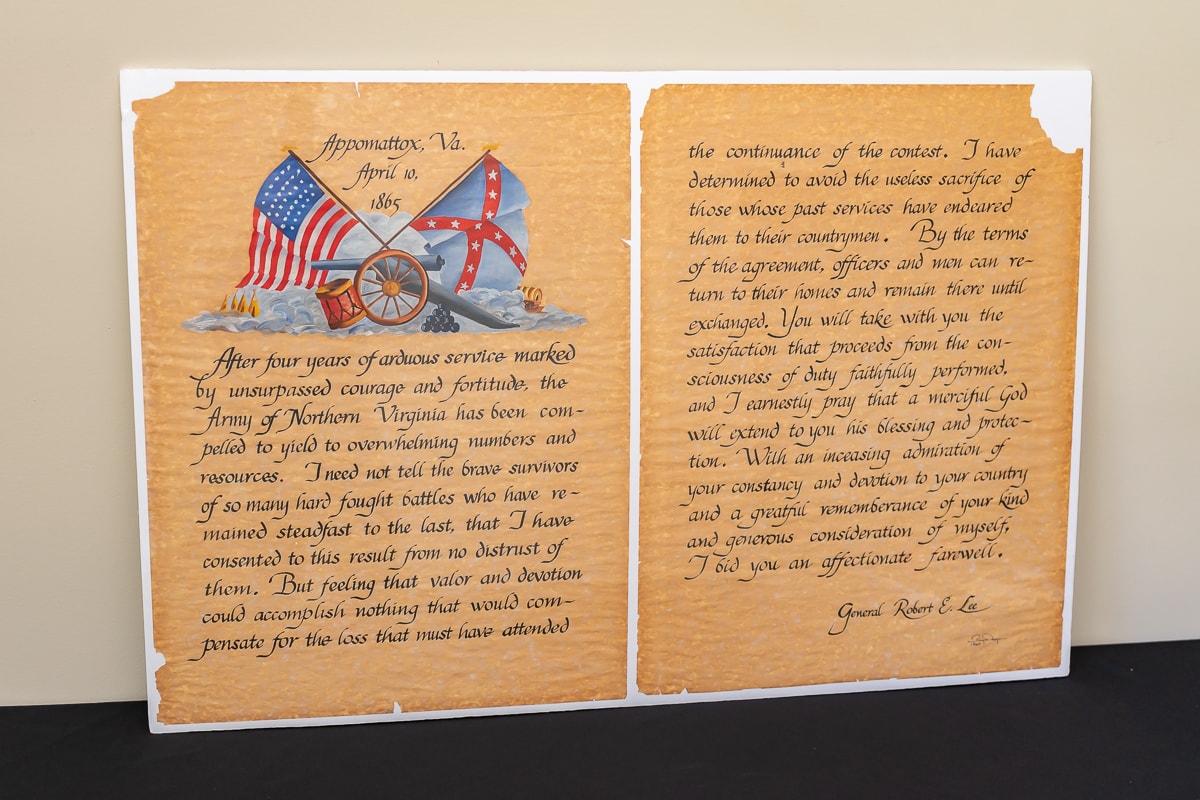 Appomattox, Va.
April 10,
1865
After four years of arduous service marked
by unsurpassed courage and fortitude, the
Army of Northern Virginia has been com-
pelled to yield to overwhelming numbers and
resources. I need not tell the brave survivors
of so many hard fought battles who have re-
mained steadfast to the last, that I have
consented to this result from no distrust of
them. But feeling that valor and devotion
could accomplish nothing that would com-
pensate for the loss that must have attended
the continuance of the contest. I have
determined to avoid the useless sacrifice of
those whose past services have endeared
them to their countrymen. By the terms
of the agreement, officers and men can re-
turn to their homes and remain there until
exchanged. You will take with you the
satisfaction that proceeds from the con-
sciousness of duty faithfully performed,
and I earnestly pray that a merciful God
will extend to you his blessing and protec-
tion. With an inceasing admiration of
your constancy and devotion to your country
and a greatful rememberance of your kind
and generous consideration of myself,
I bid you an affectionate farewell.
General Robert E. Lee